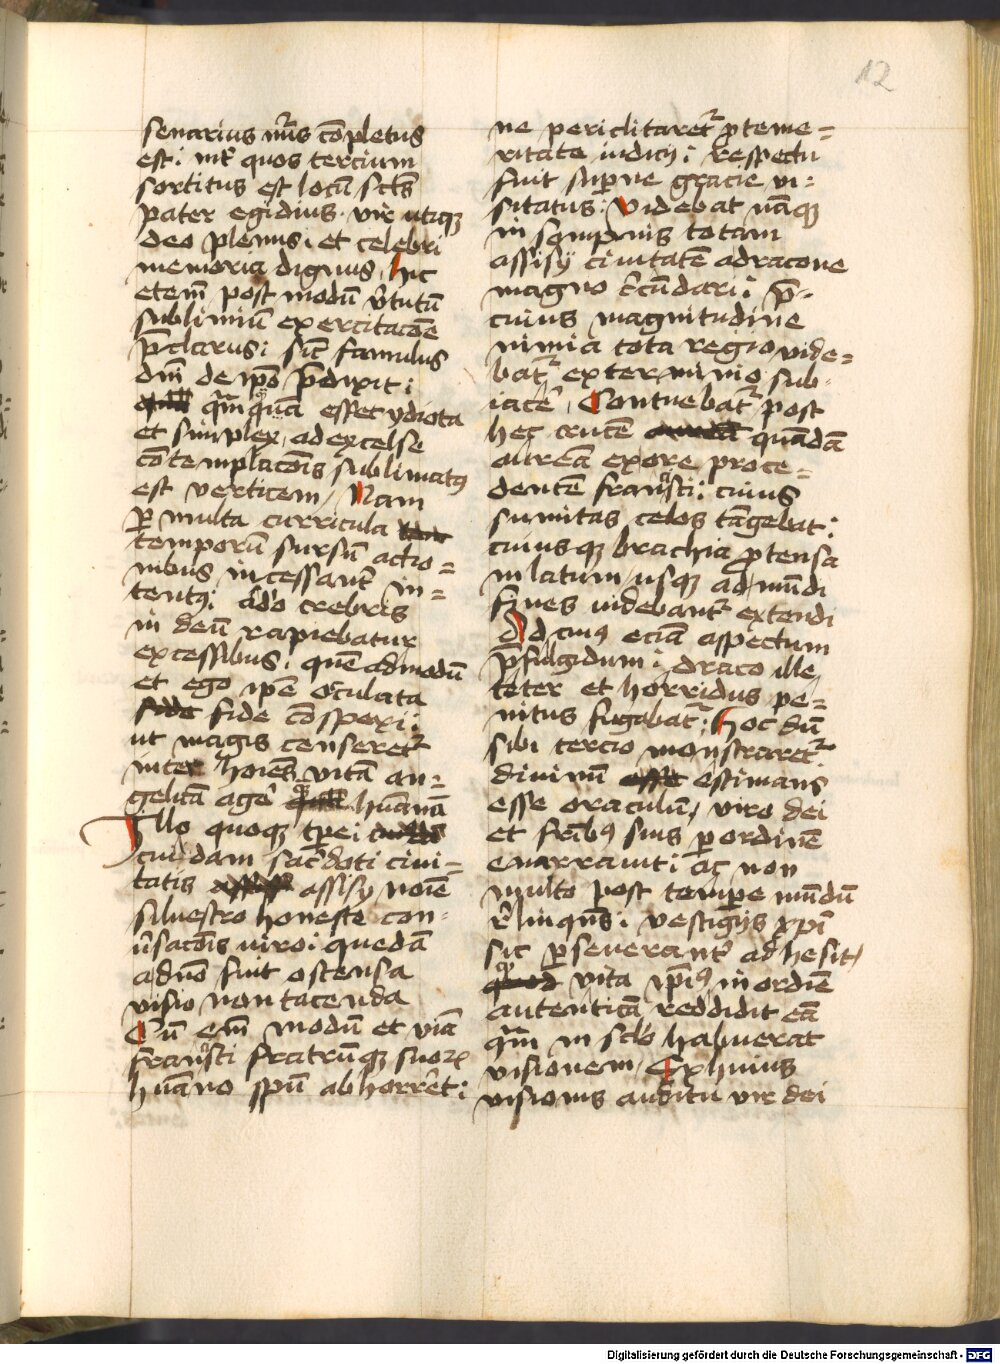 12
senarius nu͛s cōpletus
est: int͛ quos tercium
sortitus est locū sct͛s
pater egidius. vir utiqꝫ
deo plenus: et celebri
memoria dignus, hic
etem̄ post modū v͛tutū
sublimiū exercitacōe
p̄clarus: sic͛ famulus
dn̄i de ip̄o p̄dixit:
qm̄quā esset ydiota
et simplex, ad excelse
cōtemplacōis sublimatꝰ
est verticem, Nam
ꝑ multa curricula
temporū sursū actio=
nibus incessant͛ in=
tentꝰ: ado͛ crebris
in deū rapiebatur
excessibus: quēadmodū
et ego ip̄e oculata
fide cōspexi:
ut magis censeret͛
inter hoīes vitā an=
gelicā age͛ qᷓ huānā
Illo quoqꝫ tp̄e:
cuidam sac͛doti ciui=
tatis assisy noīe
siluestro honeste con=
u͛sacōis uiro: quedā
aduō fuit ostensa
visio non tacenda
Cū em̄ modū et viā
francisci fratrūqꝫ suoꝝ
huāno spū abhorre͛t:
ne periclitaret͛ p̱ teme=
ritate iudicy: respectu
fuit suꝑne gracie vi=
sitatus: Videbat nāqꝫ
in sompnis totam
assisy ciuitatē a dracone
magno c͛cūdari: p̄
cuius magnitudine
nimia tota regio vide=
bat͛ exterminio sub=
iace͛, Contuebat͛ post
hec crucē quādā
aureā ex ore proce=
dentē francisci: cuius
sumitas celos tāgebat:
cuiusqꝫ brachia ꝓtensa
in latum, usqꝫ ad mūdi
fines uidebant͛ extendi
Ad cuiꝰ eciā aspectum
p̄fulgidum: draco ille
teter et horridus pe=
nitus fugabat͛: Hoc dū
sibi tercio monstraret͛
diuinū estimans
esse oraculū, viro dei
et frīb᷒ suis ꝑ ordinē
enarrauit: ac non
multo post tempe͛ mūdū
r͛linqūs: vestigijs xp̄i
sic ꝑseuerant͛ adhesit,
qᷓ vita ip̄iꝰ in ordīe
autenticā reddidit eā
qm̄ in sclo͛ habuerat
visionem, Ex huius
visionis auditu vir dei
Digitalisierung gefördert durch die Deutsche Forschungsgemeinschaft - DFG